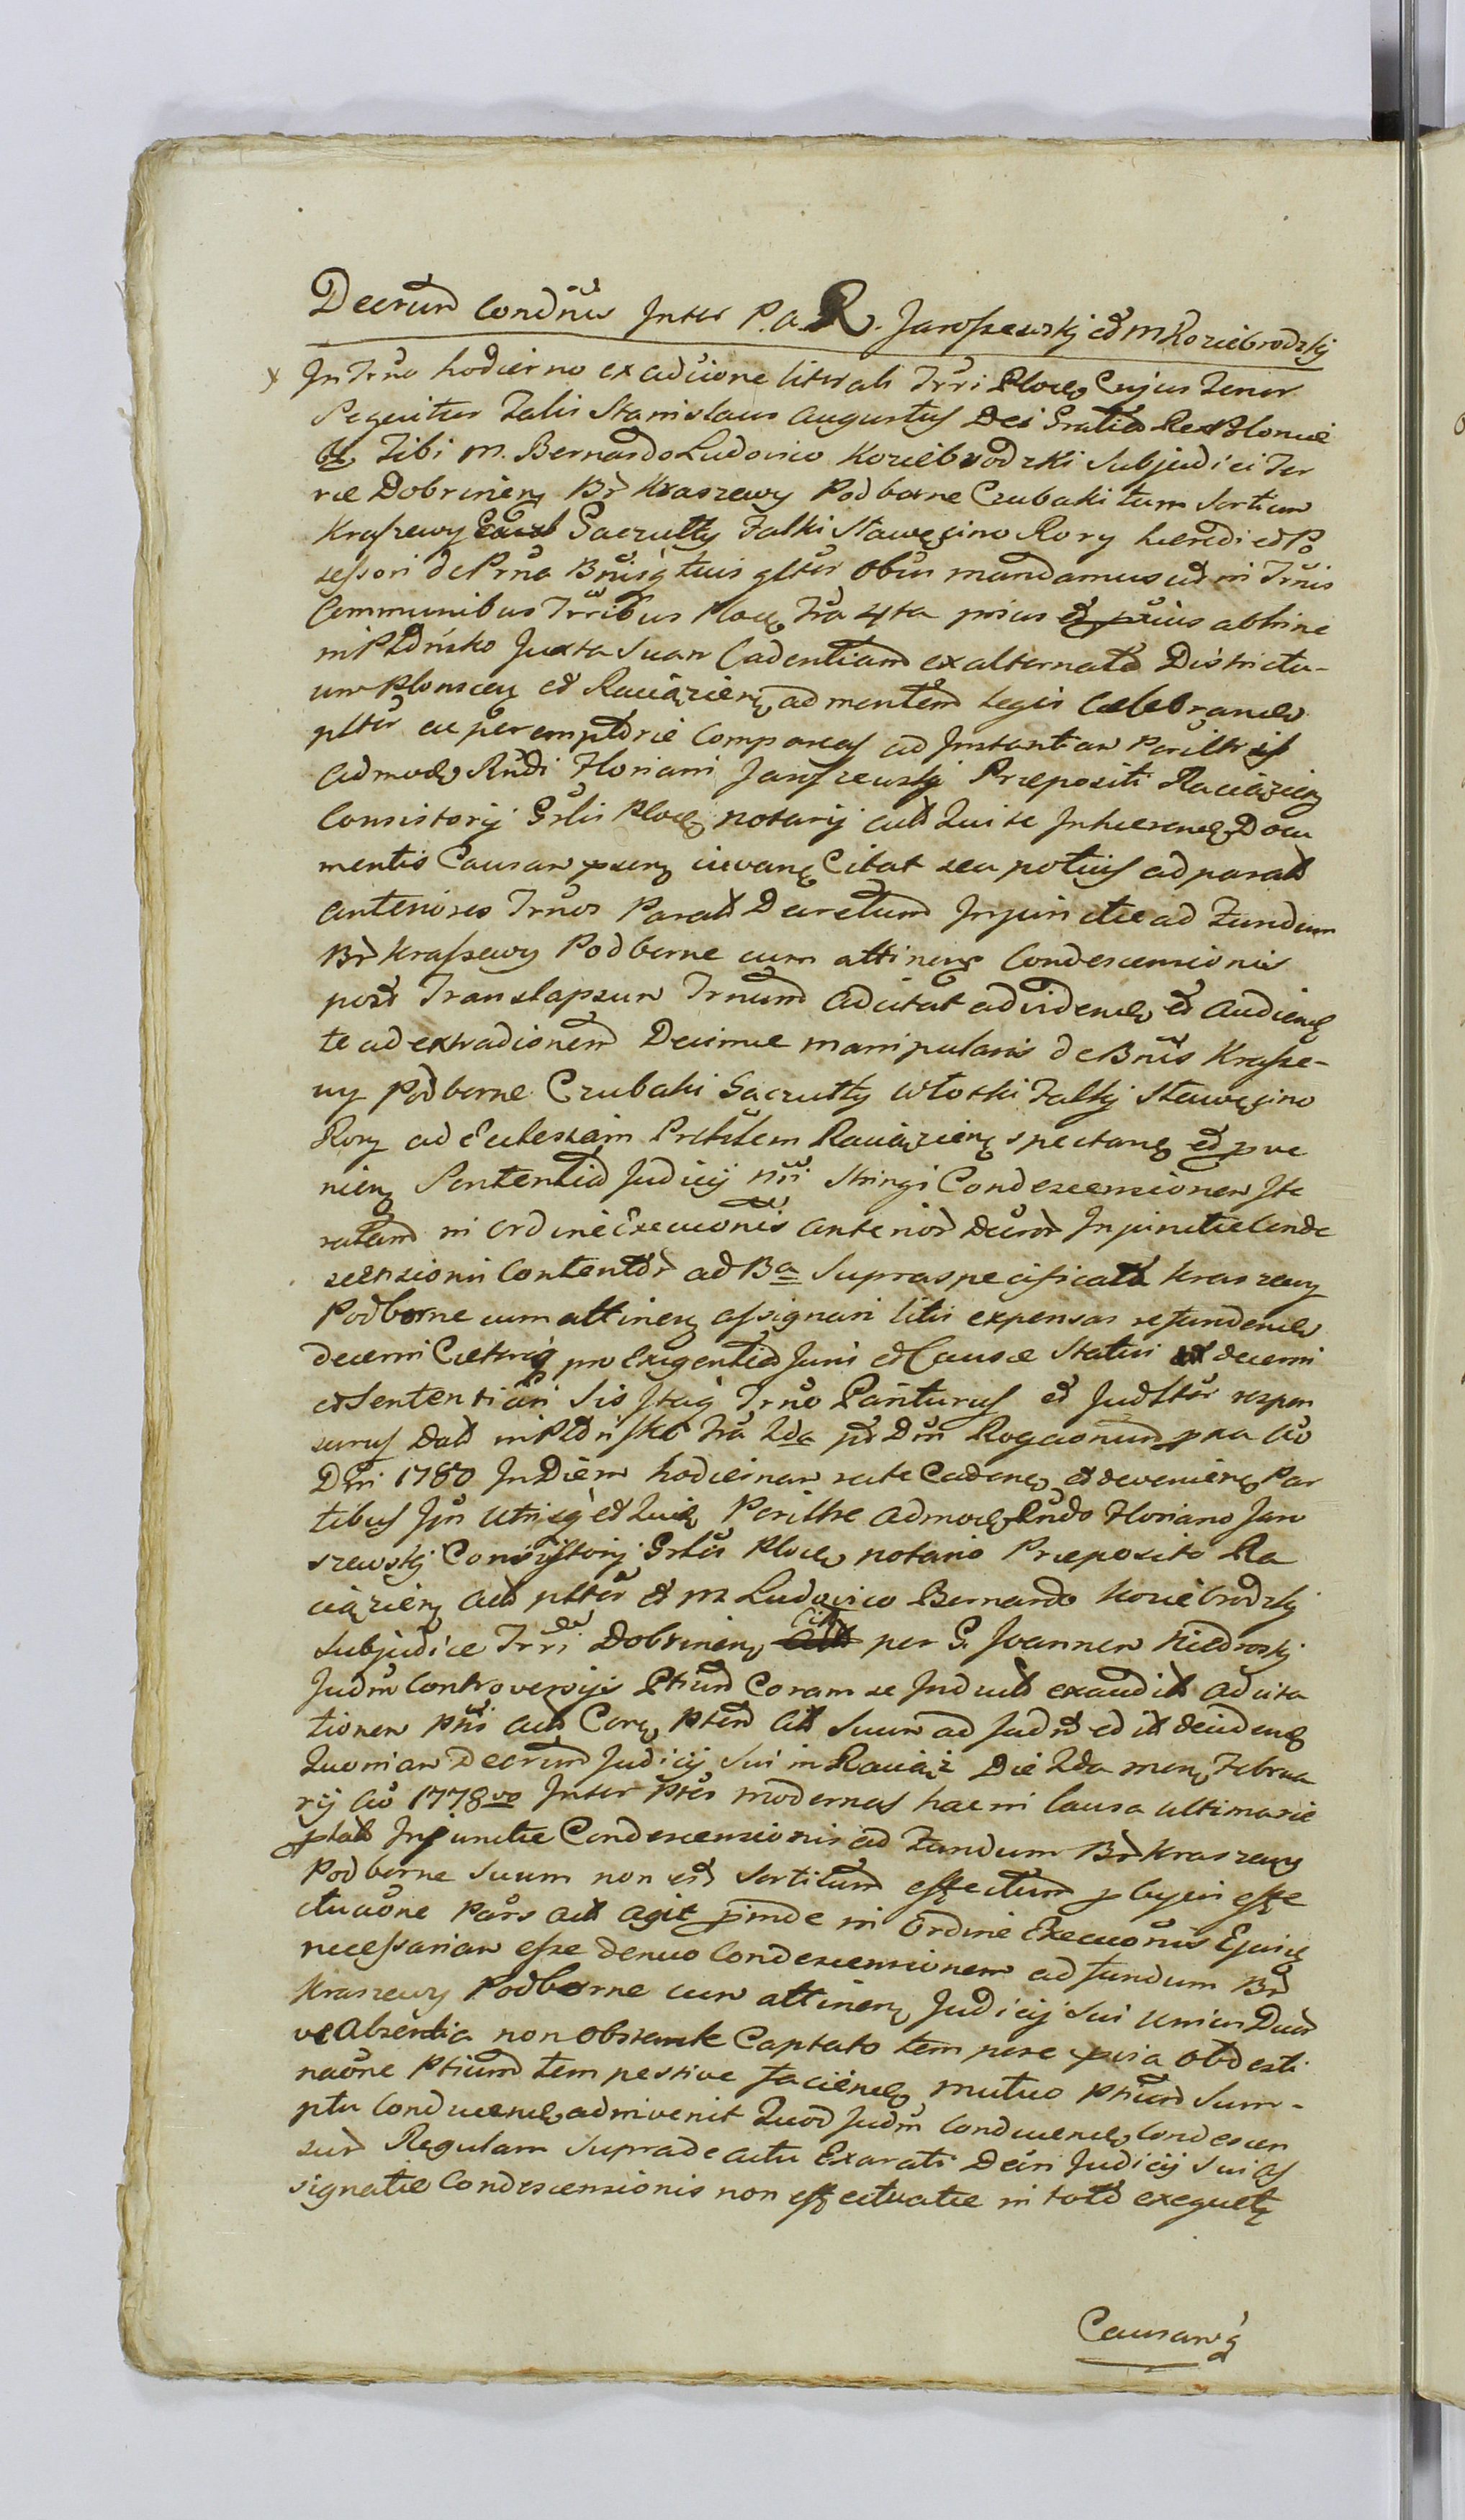 Decrum Condnis Inter P. A. R. Jaroszewskj et M Koziebrodzkj
x In Trno hodierno ex adcione literali Trri Plocen Cujus Tenor
Sequitur Talis Stanislaus Augustus Dei Gratia Rex Poloniæ
Tibi M. Bernardo Ludovico Koziebrodzki Subjudici Ter
ræ Dobrinen Br Kraszewy Podborne Czubaki tum Sortium
Kraszewy Gaczułty Falki Stawęcino Rory hæredi et Po
sessori de Prna Bnisq tuis gltr Obus mandamus ut in Trnis
Communibus Trribus Plocen Fra 4ta prius abhinc
in Płońsko Juxta Suam Cadentiam ex alternata Districtu-
um Plonscen et Raciązien ad mentem Legis Celebrand
pltr ac peremptorie Compareas ad Instantiam Perillris
Admod Rndi Floriani Jaroszewskj Præpositi Raciązien
Consistorij Grlis Plocen Notarij Qui te Inhærend Docu
mentis Causam Citat seu potius ad parat
anteriores Trnos Parat Decretum Injunctæ ad Fundum
Br Kraszewy Podborne cum attinen Condescensionis
post Translapsum Trnum Adcitat ad vidend et Audiend
te ad extradionem Decimæ manipularis de Bnis Krasze-
wy Podborne Czubaki Gaczułty Włostki Falkj Stawęcino
Rory ad Ecclesiam Raciązien spectan et prve
nien Sententia Judicij nri Stringi Condescensionem Ite
ratam in Ordine Execuonis anterior Decror Injunctæ Conde
scensionis Contentor ad Ba Supraspecificata Kraszewy
Podborne cum attinen assignari litis expensas refundend
decerni Cæteraq pro Exigentia Juris et Causæ Status decerni
et Sententiari Sis Itaq Trno Pariturus et Judltr respon
surus Dat in Płońsko Fra 2da pt Dm Rogaonum pxa Ao
Dni 1780 In Diem hodiernam recte Caden et devenien Par
tibus Ipsis Utrisq et Quid Perillre Admod Rndo Floriano Jaro
szewskj Consistorij Grlis Plocen Notario Præposito Ra
ciązien Act pltr et M Ludovico Bernardo Koziebrodzkj
Subjudice Trri Dobrinen Cit per G. Joannem Niedroskj
Judm Controversijs Ptium Coram se Induct exaudit Adcita
tionem Act Coram Cit Suum ad Judm edit decidend
Quoniam Decrum Judicij Sui in Raciąż Die 2da mens Februa
rij Ao 1778vo Inter Ptes modernas hac in Causa Ultimarie
plat Injunctæ Condescensionis ad Fundum Br Kraszewy
Podborne Suum non est Sortitum effectum p Cujus effe
ctuaone Pars act agit pinde in Ordine Execuonis Ejusd
necessariam esse denuo Condescensionem ad fundum Br
Kraszewy Podborne cum attinen Judicij Sui Unius Duor
ve Absentia non Obstante Captato tempore Obdesti
naone Ptium tempestive faciend mutuo Ptium Sum-
ptu Conducend adinvenit Quod Judm Conducend Condescen
sur Regulam Suprade actu Exarati Decri Judicij Sui As
signatæ Condescensionis non effectuatæ in toto exequetr
Causamq